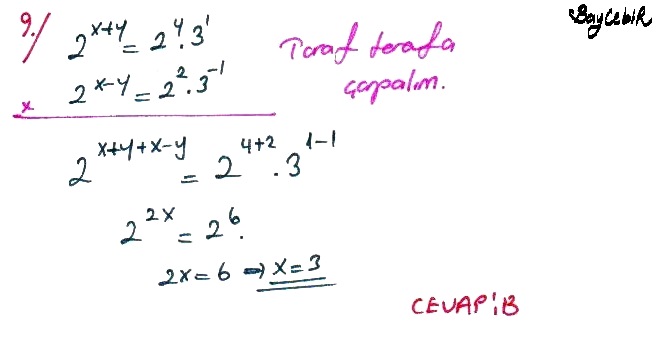 BayCebiR
9./ 2^{x+y} = 2^4 . 3^1
Taraf tarafa
x 2^{x-y} = 2^2 . 3^{-1}
çarpalım.
2^{x+y+x-y} = 2^{4+2} . 3^{1-1}
2^{2x} = 2^6 .
2x = 6 ⇒ x = 3
CEVAP: B